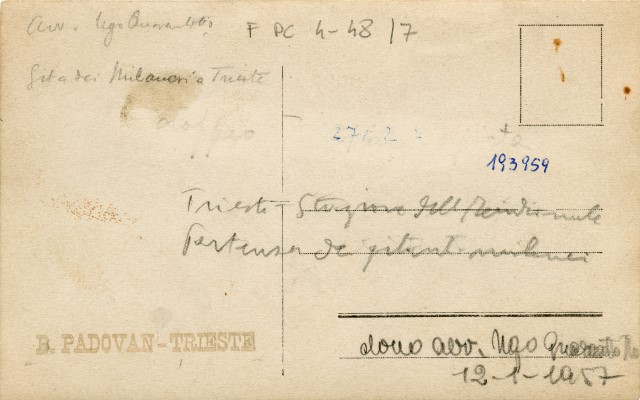 avv. Ugo Quarantotto
F PC 4-48/7
Gita dei Milanesi a Trieste
doppio
193959
Trieste - Stazione dell Meridionale
Partenza dei gitanti milanesi
B. PADOVAN-TRIESTE
dono avv. Ugo
12-1-1957